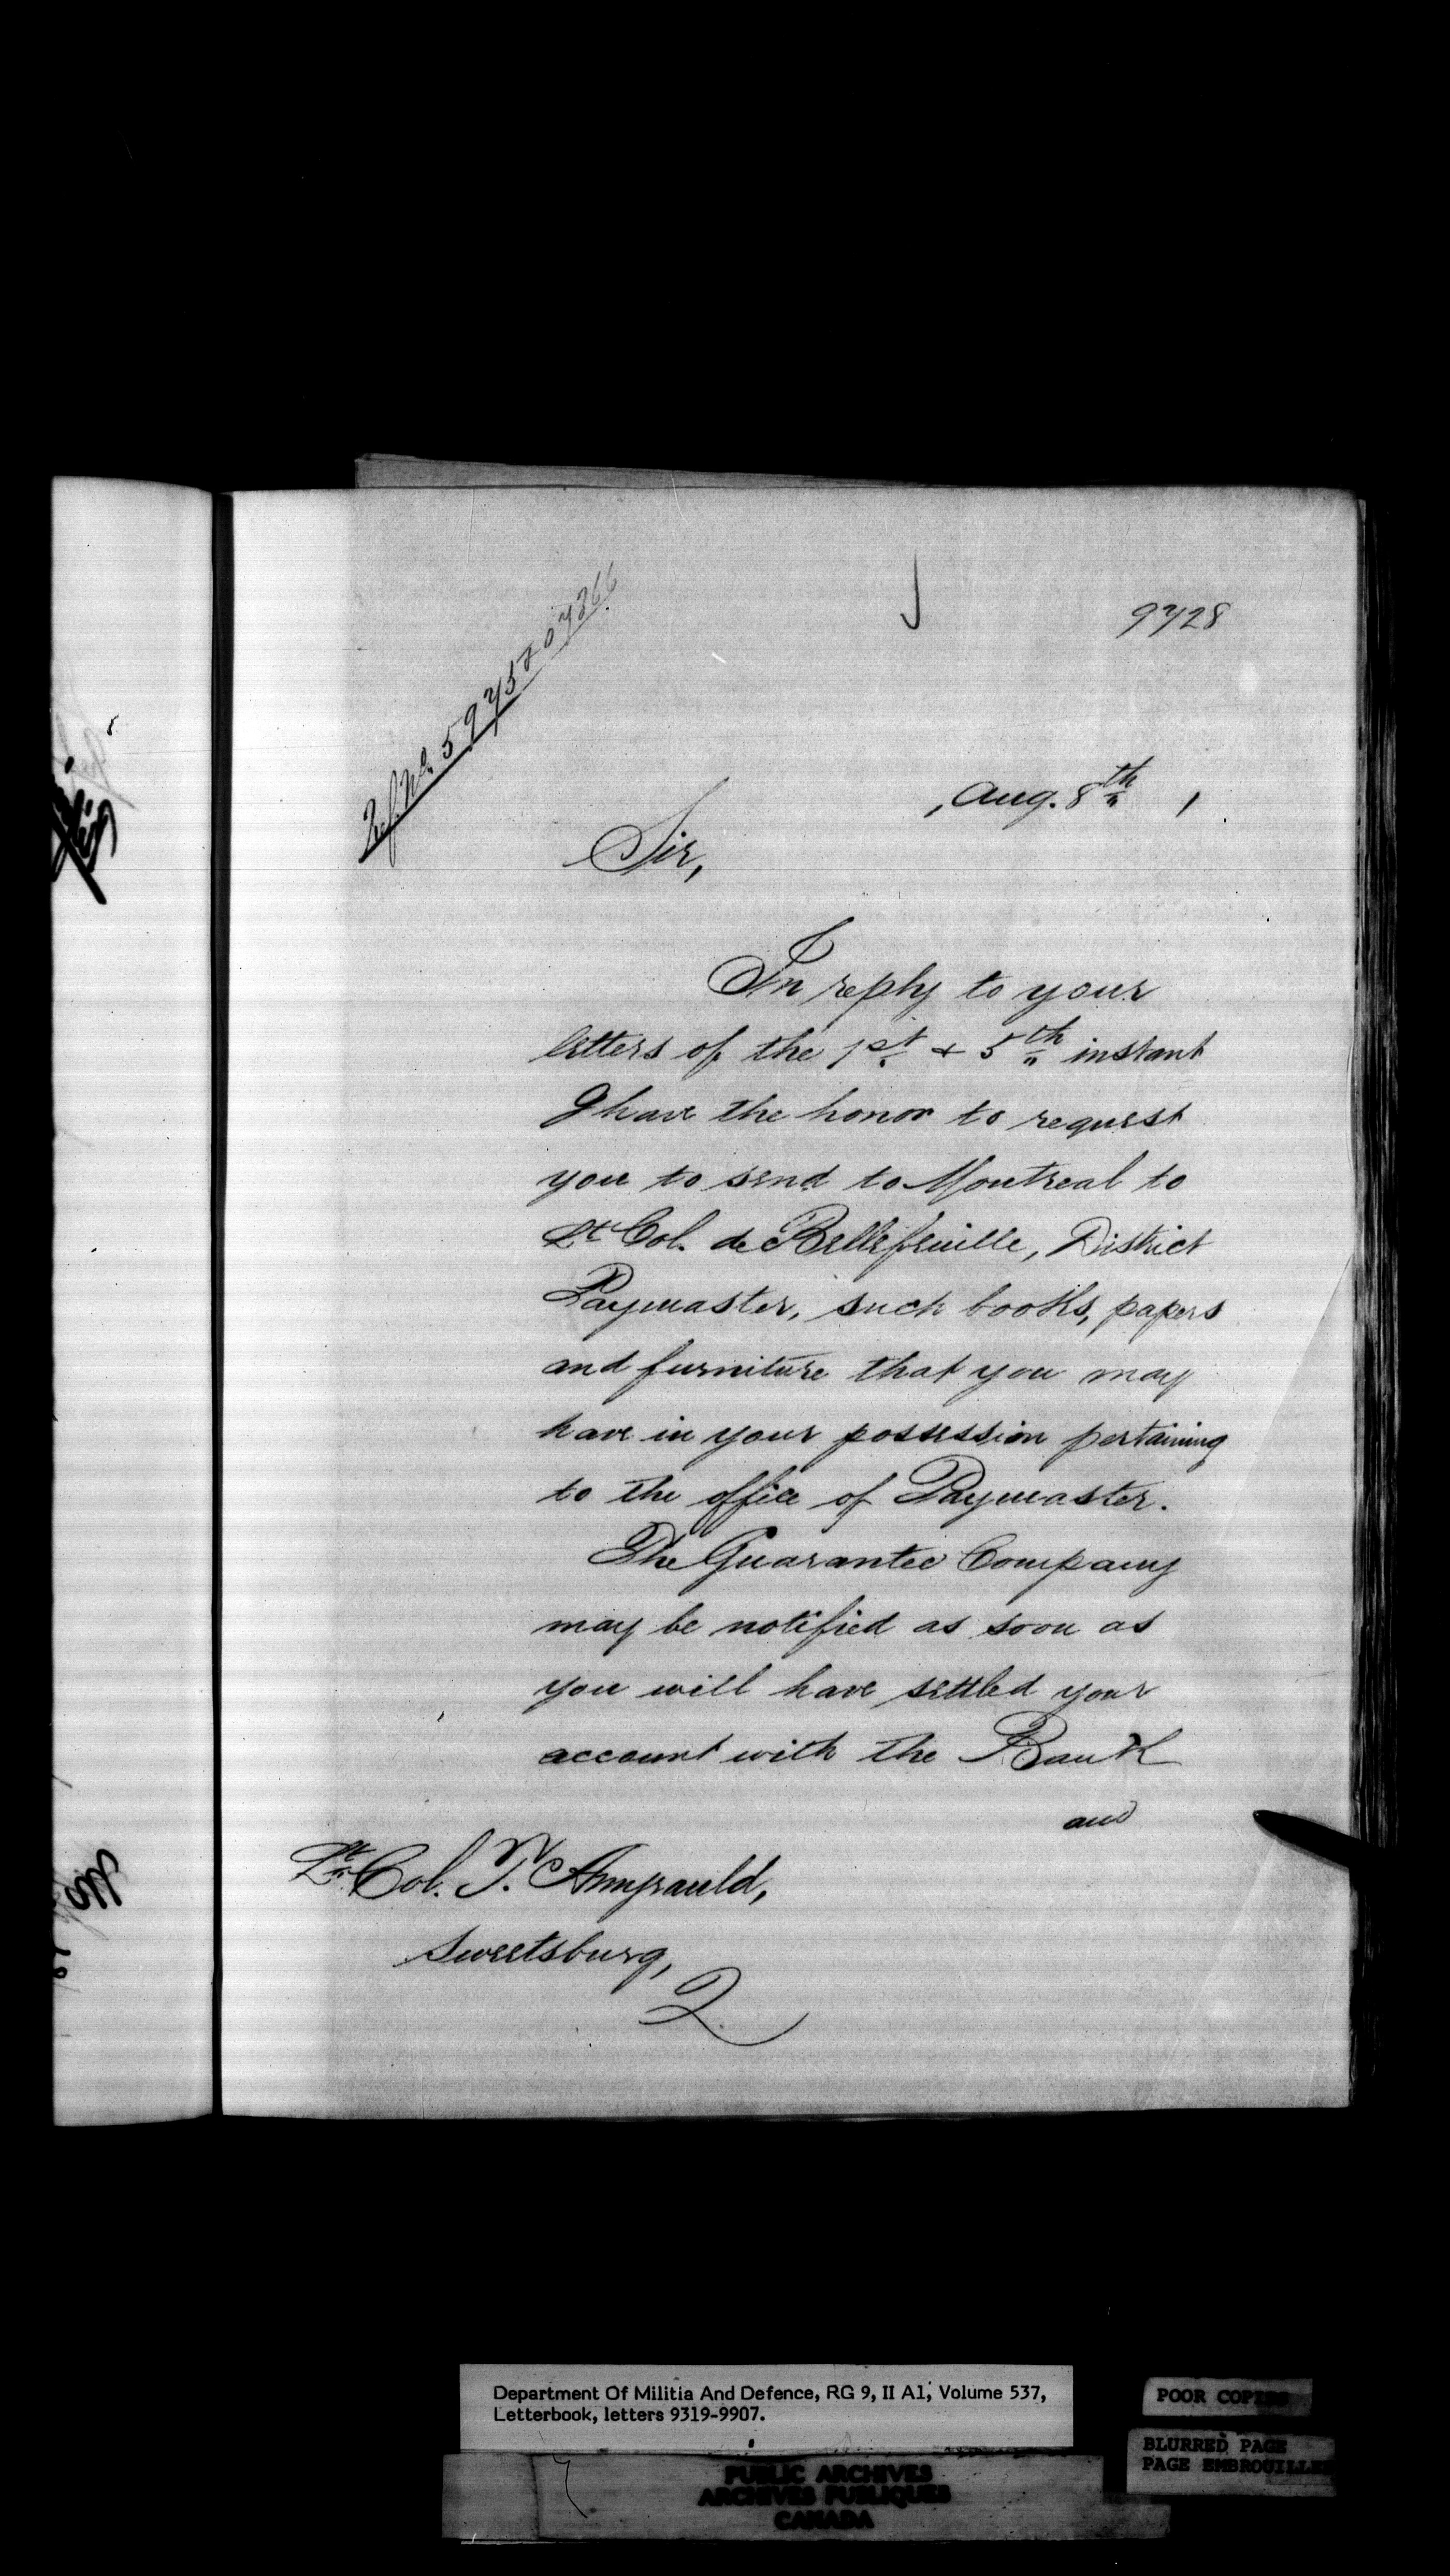 9728
Ref. No. 5975
Aug. 8th
Sir,
In reply to your
letters of the 1st & 5th instant
I have the honor to request
you to send to Montreal to
Lt Col. de Bellefeuille, District
Paymaster, such books, papers
and furniture that you may
have in your possession pertaining
to the office of Paymaster.
The Guarantee Company
may be notified as soon as
you will have settled your
account with the Bank
and
Lt Col. T.
Sweetsburg,
Q.
Department Of Militia And Defence, RG 9, II A1, Volume 537,
Letterbook, letters 9319-9907.
POOR COPIES
BLURRED PAGE
PAGE EMBROUILLEE
PUBLIC ARCHIVES
ARCHIVES PUBLIQUES
CANADA